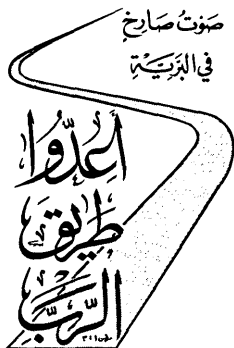 صَوْتُ صَارِخٍ
في البَرِّيَّةِ
أَعِدُّوا
طَرِيقَ
الرَّبِّ